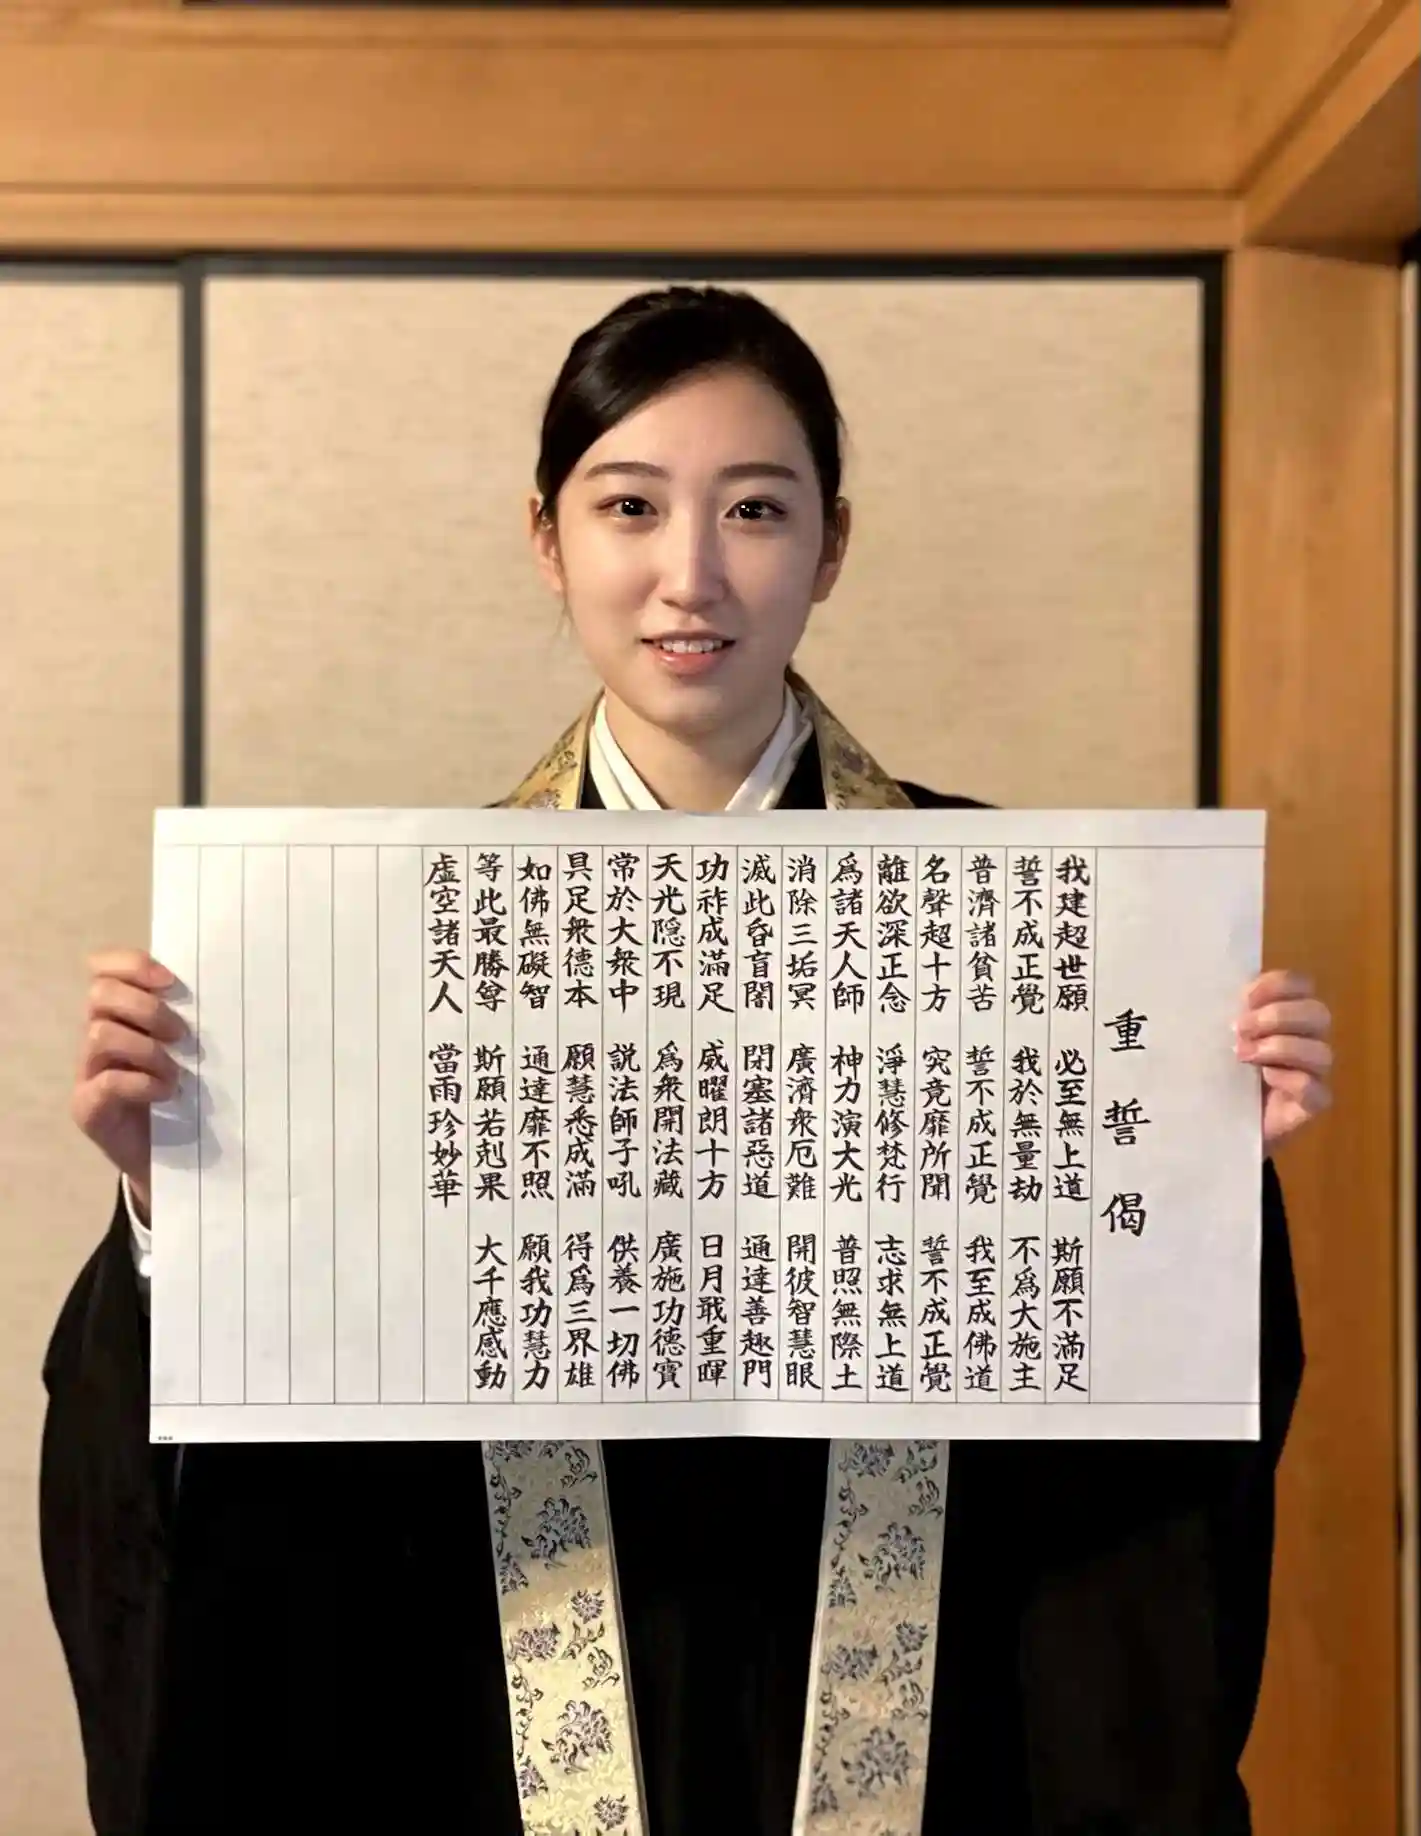 重誓偈
我建超世願 必至無上道 斯願不滿足
誓不成正覺 我於無量劫 不爲大施主
普濟諸貧苦 誓不成正覺 我至成佛道
名聲超十方 究竟靡所聞 誓不成正覺
離欲深正念 淨慧修梵行 志求無上道
爲諸天人師 神力演大光 普照無際土
消除三垢冥 廣濟衆厄難 開彼智慧眼
滅此昏盲闇 閉塞諸惡道 通達善趣門
功祚成滿足 威曜朗十方 日月戢重暉
天光隱不現 爲衆開法藏 廣施功德寶
常於大衆中 説法師子吼 供養一切佛
具足衆德本 願慧悉成滿 得爲三界雄
如佛無礙智 通達靡不照 願我功慧力
等此最勝尊 斯願若剋果 大千應感動
虛空諸天人 當雨珍妙華